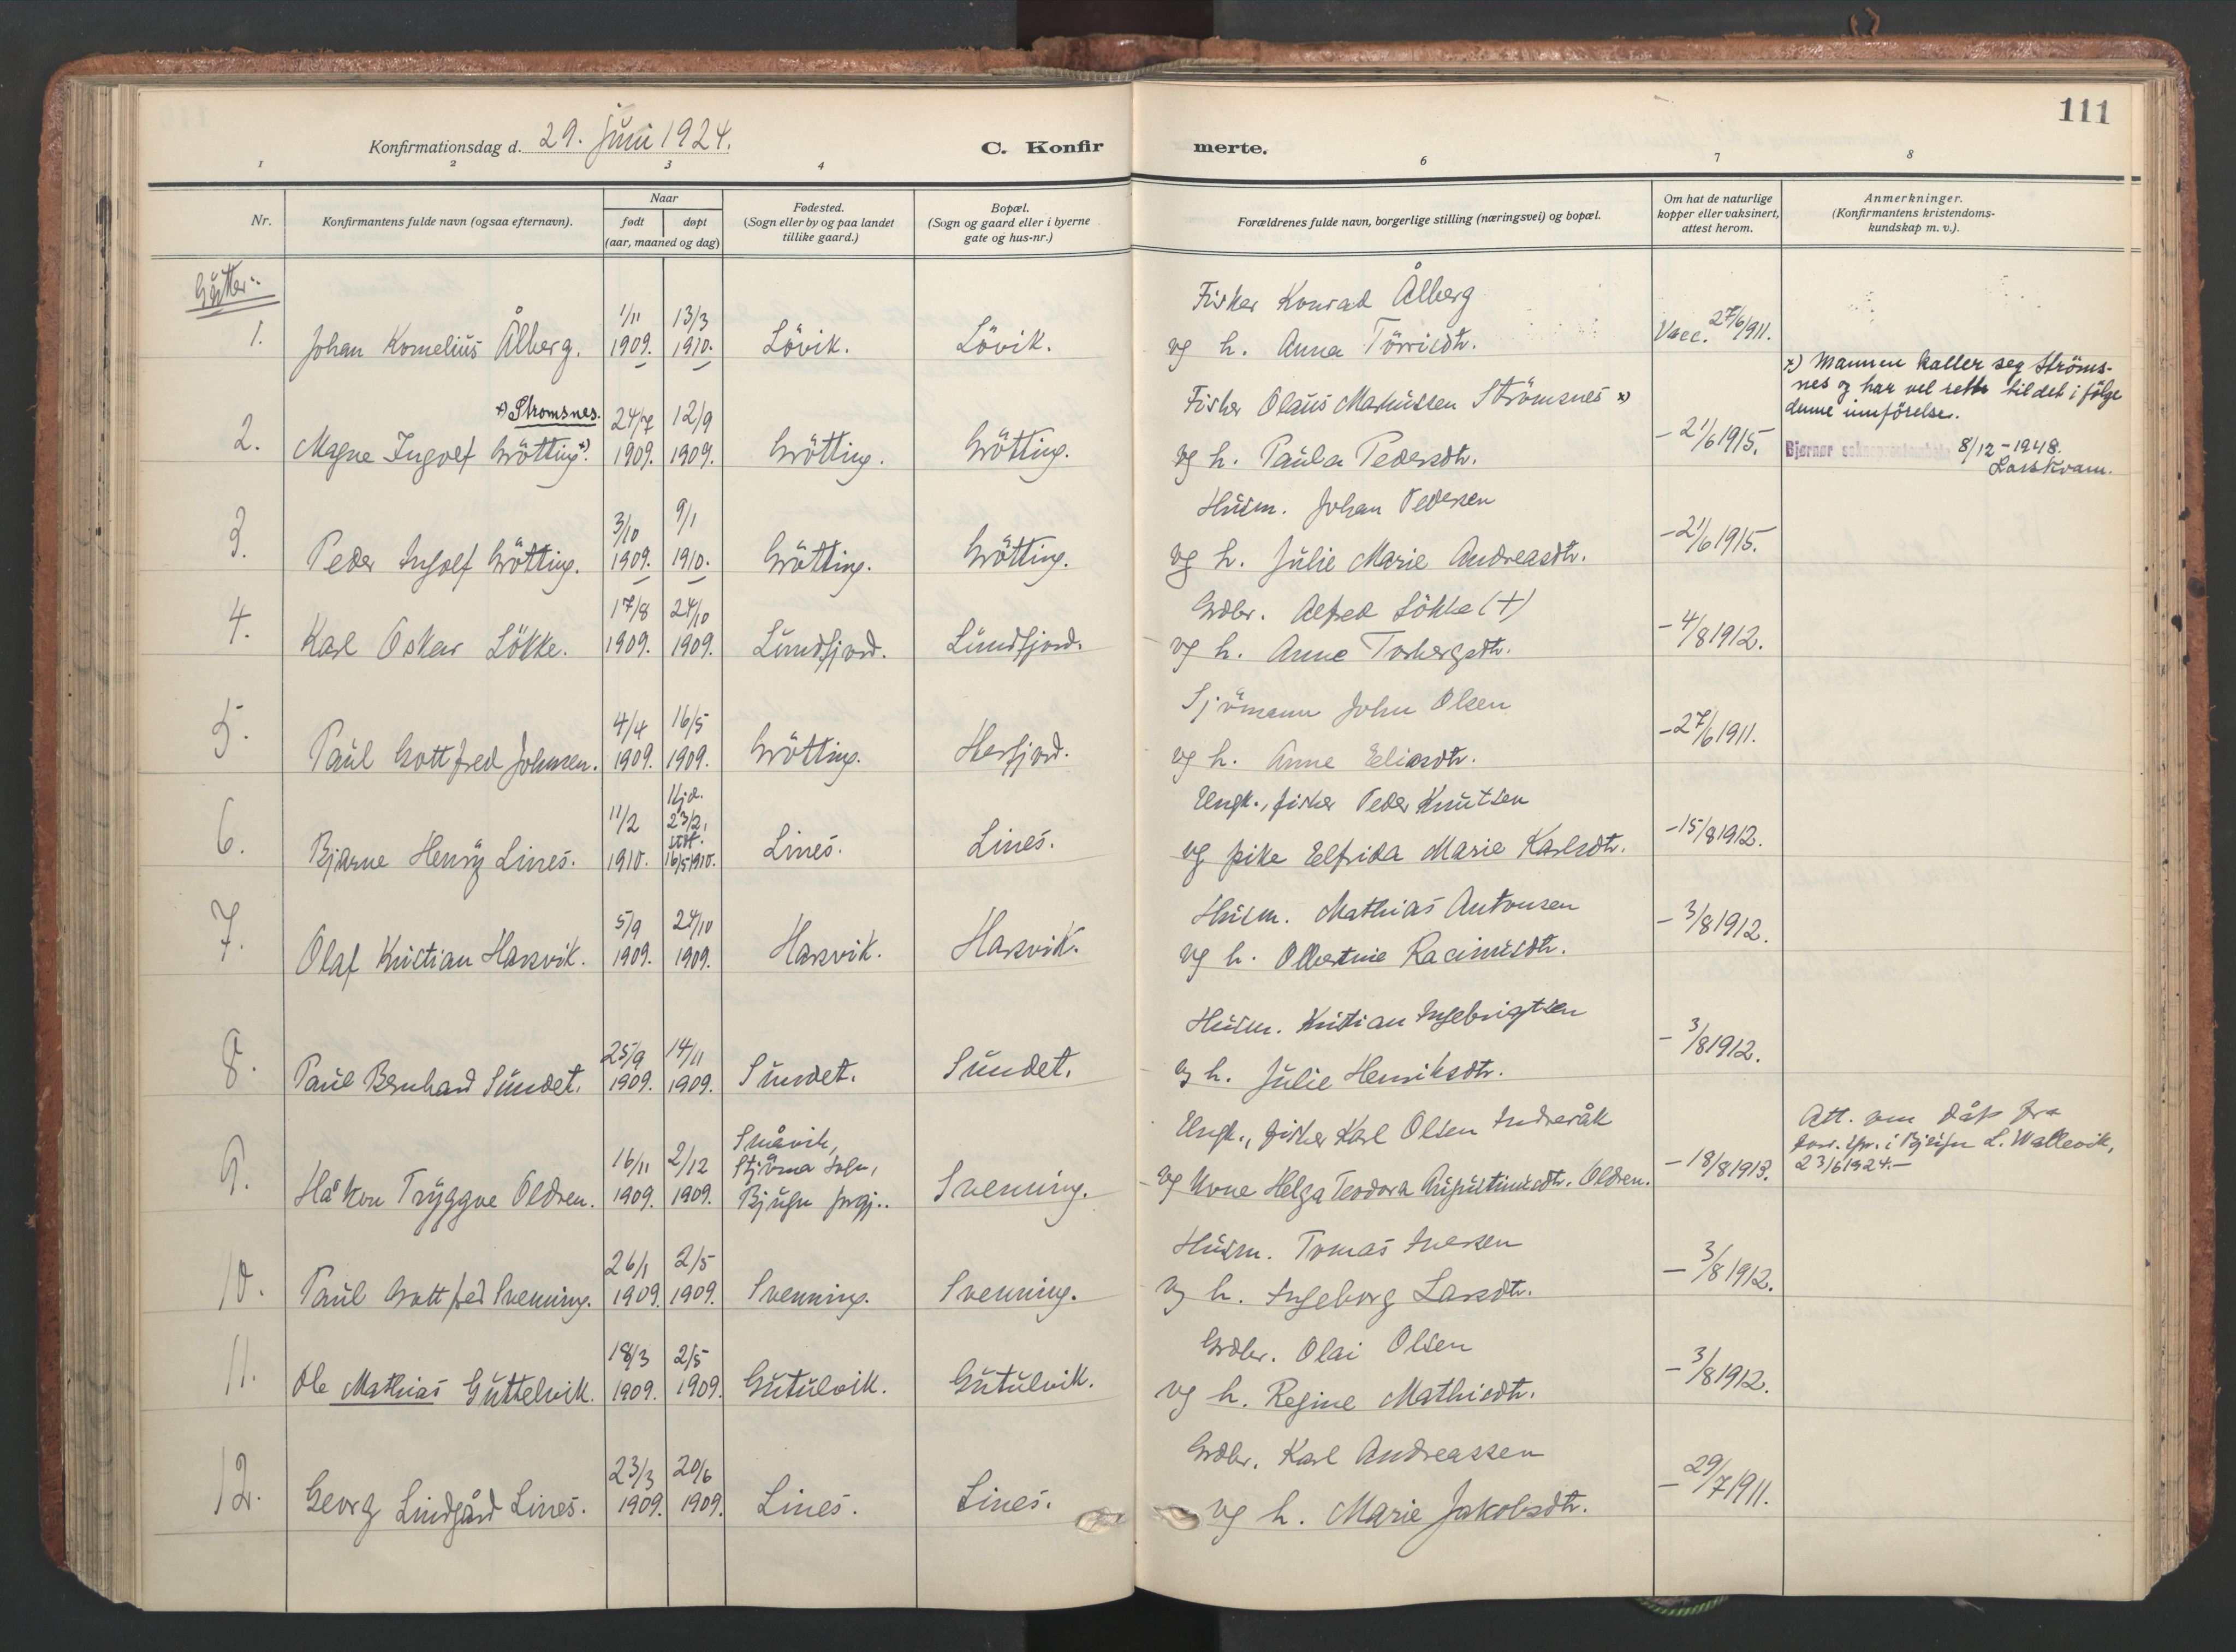 111
Konfirmationsdag d. 29. juni 1924.
C. Konfirmerte.
1 2 3 4 6 7 8
Nr.
Konfirmantens fulde navn (ogsaa efternavn).
Naar
født døpt
(aar, maaned og dag)
Fødested.
(Sogn eller by og paa landet
tillike gaard.)
Bopæl.
(Sogn og gaard eller i byerne
gate og hus-nr.)
Forældrenes fulde navn, borgerlige stilling (næringsvei) og bopæl.
Om hat de naturlige
kopper eller vaksinert,
attest herom.
Anmerkninger.
(Konfirmantens kristendoms-
kundskap m. v.).
Gutter:
1/11 13/3 Fisker Konrad Ålberg
1. Johan Kornelius Ålberg. 1909. 1910. Lövik. Lövik. og h. Anna Törrisdtr. Vacc. 27/6 1911.
x) Strømsnes. 24/7 12/9 Fisker Olaus Markussen Strömsnes x)
2. Magne Ingolf Grötting x). 1909. 1909. Grötting. Grötting. og h. Paula Pedersdtr. - 21/6 1915.
x) Mannen kaller seg Ströms-
nes og har vel rett til det i følge
denne innförelse.
Bjørnør sokneprestembete 8/12 - 1948.
Lars Kvam.
3/10 9/1 Husm. Johan Pedersen
3. Peder Ingolf Grötting. 1909. 1910. Grötting. Grötting. og h. Julie Marie Andreasdtr. - 21/6 1915.
17/8 24/10 Grdbr. Alfred Lökke (+)
4. Karl Oskar Lökke. 1909. 1909. Sundfjord. Sundfjord. og h. Anne Torbergsdtr. - 4/8 1912.
4/4 16/5 Sjömann John Olsen
5. Paul Gottfred Johnsen. 1909. 1909. Grötting. Herfjord. og h. Anne Eliasdtr. - 27/6 1911.
11/2 Hjd. 23/2, stdf. Ungk., fisker Peder Knutsen
6. Bjarne Henry Lines. 1910. 16/5 1910. Lines. Lines. og pike Elfrida Marie Karlsdtr. - 15/8 1912.
5/9 24/10 Husm. Mathias Antonsen
7. Olaf Kristian Harsvik. 1909. 1909. Harsvik. Harsvik. og h. Olbertine Racinusdtr. - 3/8 1912.
25/9 14/11 Husm. Kristian Ingebrigtsen
8. Paul Bernhard Sundet. 1909. 1909. Sundet. Sundet. og h. Julie Henriksdtr. - 3/8 1912.
16/11 2/12 Småvik, Stjörna sogn, Ungk., fisker Karl Olsen Indreråk
9. Håkon Tryggve Oldren. 1909. 1909. Bjugn prgj.. Svenning. og Møne Helga Teodora Augustinusdtr. Oldren. - 18/8 1913.
Att. om dåp fra
i Bjugn L. Wallevik,
23/6 1924.-
26/1 2/5 Husm. Tomas Iversen
10. Paul Gottfred Svenning. 1909. 1909. Svenning. Svenning. og h. Ingeborg Larsdtr. - 3/8 1912.
18/3 2/5 Grdbr. Olai Olsen
11. Ole Mathias Guttelvik. 1909. 1909. Gutulvik. Gutulvik. og h. Regine Mathisdtr. - 3/8 1912.
23/3 20/6 Grdbr. Karl Andreassen
12. Georg Lindgård Lines. 1909. 1909. Lines. Lines. og h. Marie Jakobsdtr. - 29/7 1911.